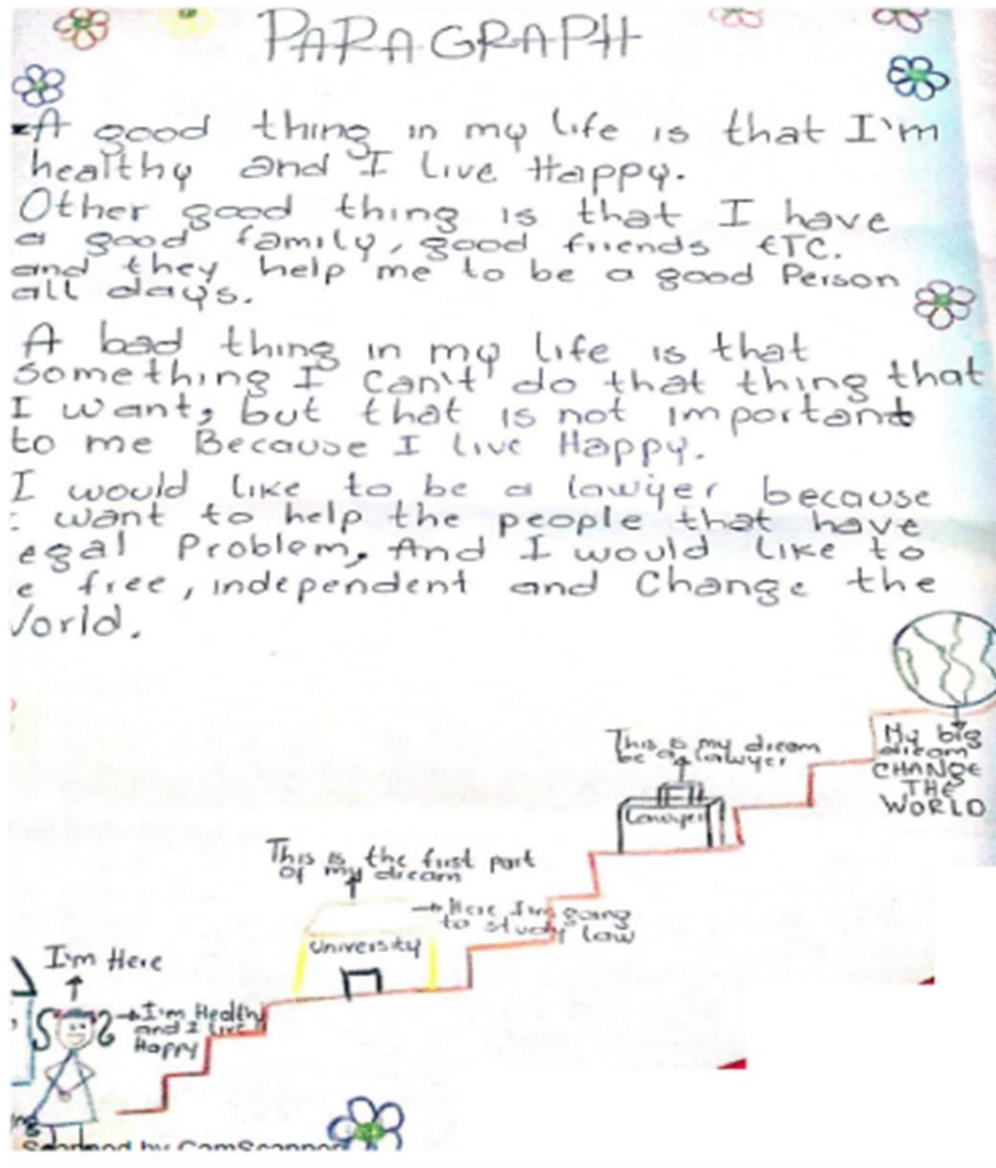 PARAGRAPH
A good thing in my life is that I'm
healthy and I live Happy.
Other good thing is that I have
a good family, good friends ETC.
and they help me to be a good Person
all days.
A bad thing in my life is that
something I can't do that thing that
I want, but that is not important
to me Because I live Happy.
I would like to be a lawyer because
want to help the people that have
egal Problem, And I would like to
e free, independent and Change the
orld.
This is my dream
be a lawyer
My big
dream
CHANGE
THE
WORLD
Lawyer
This is the first part
of my dream
Here I'm going
to study law
University
I'm Here
I'm Healthy
and I live
Happy
Scanned by CamScanner